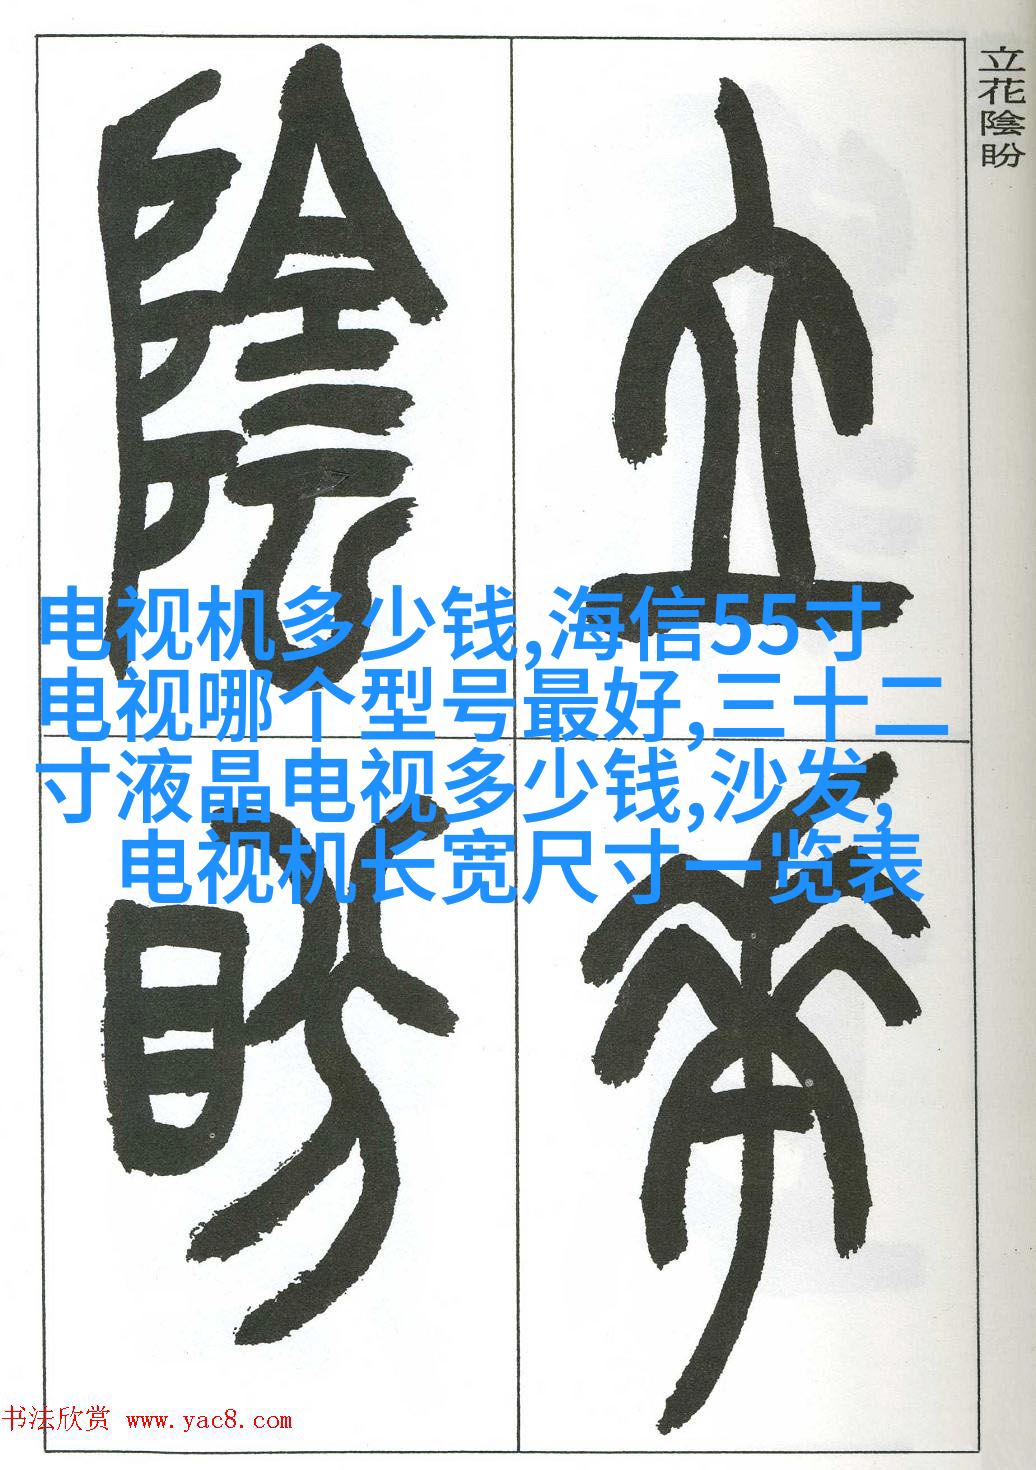 立花陰盼
立
花
陰
盼
电视机多少钱,海信55寸
电视哪个型号最好,三十二
寸液晶电视多少钱,沙发,
电视机长宽尺寸一览表
书法欣赏 www.yac8.com